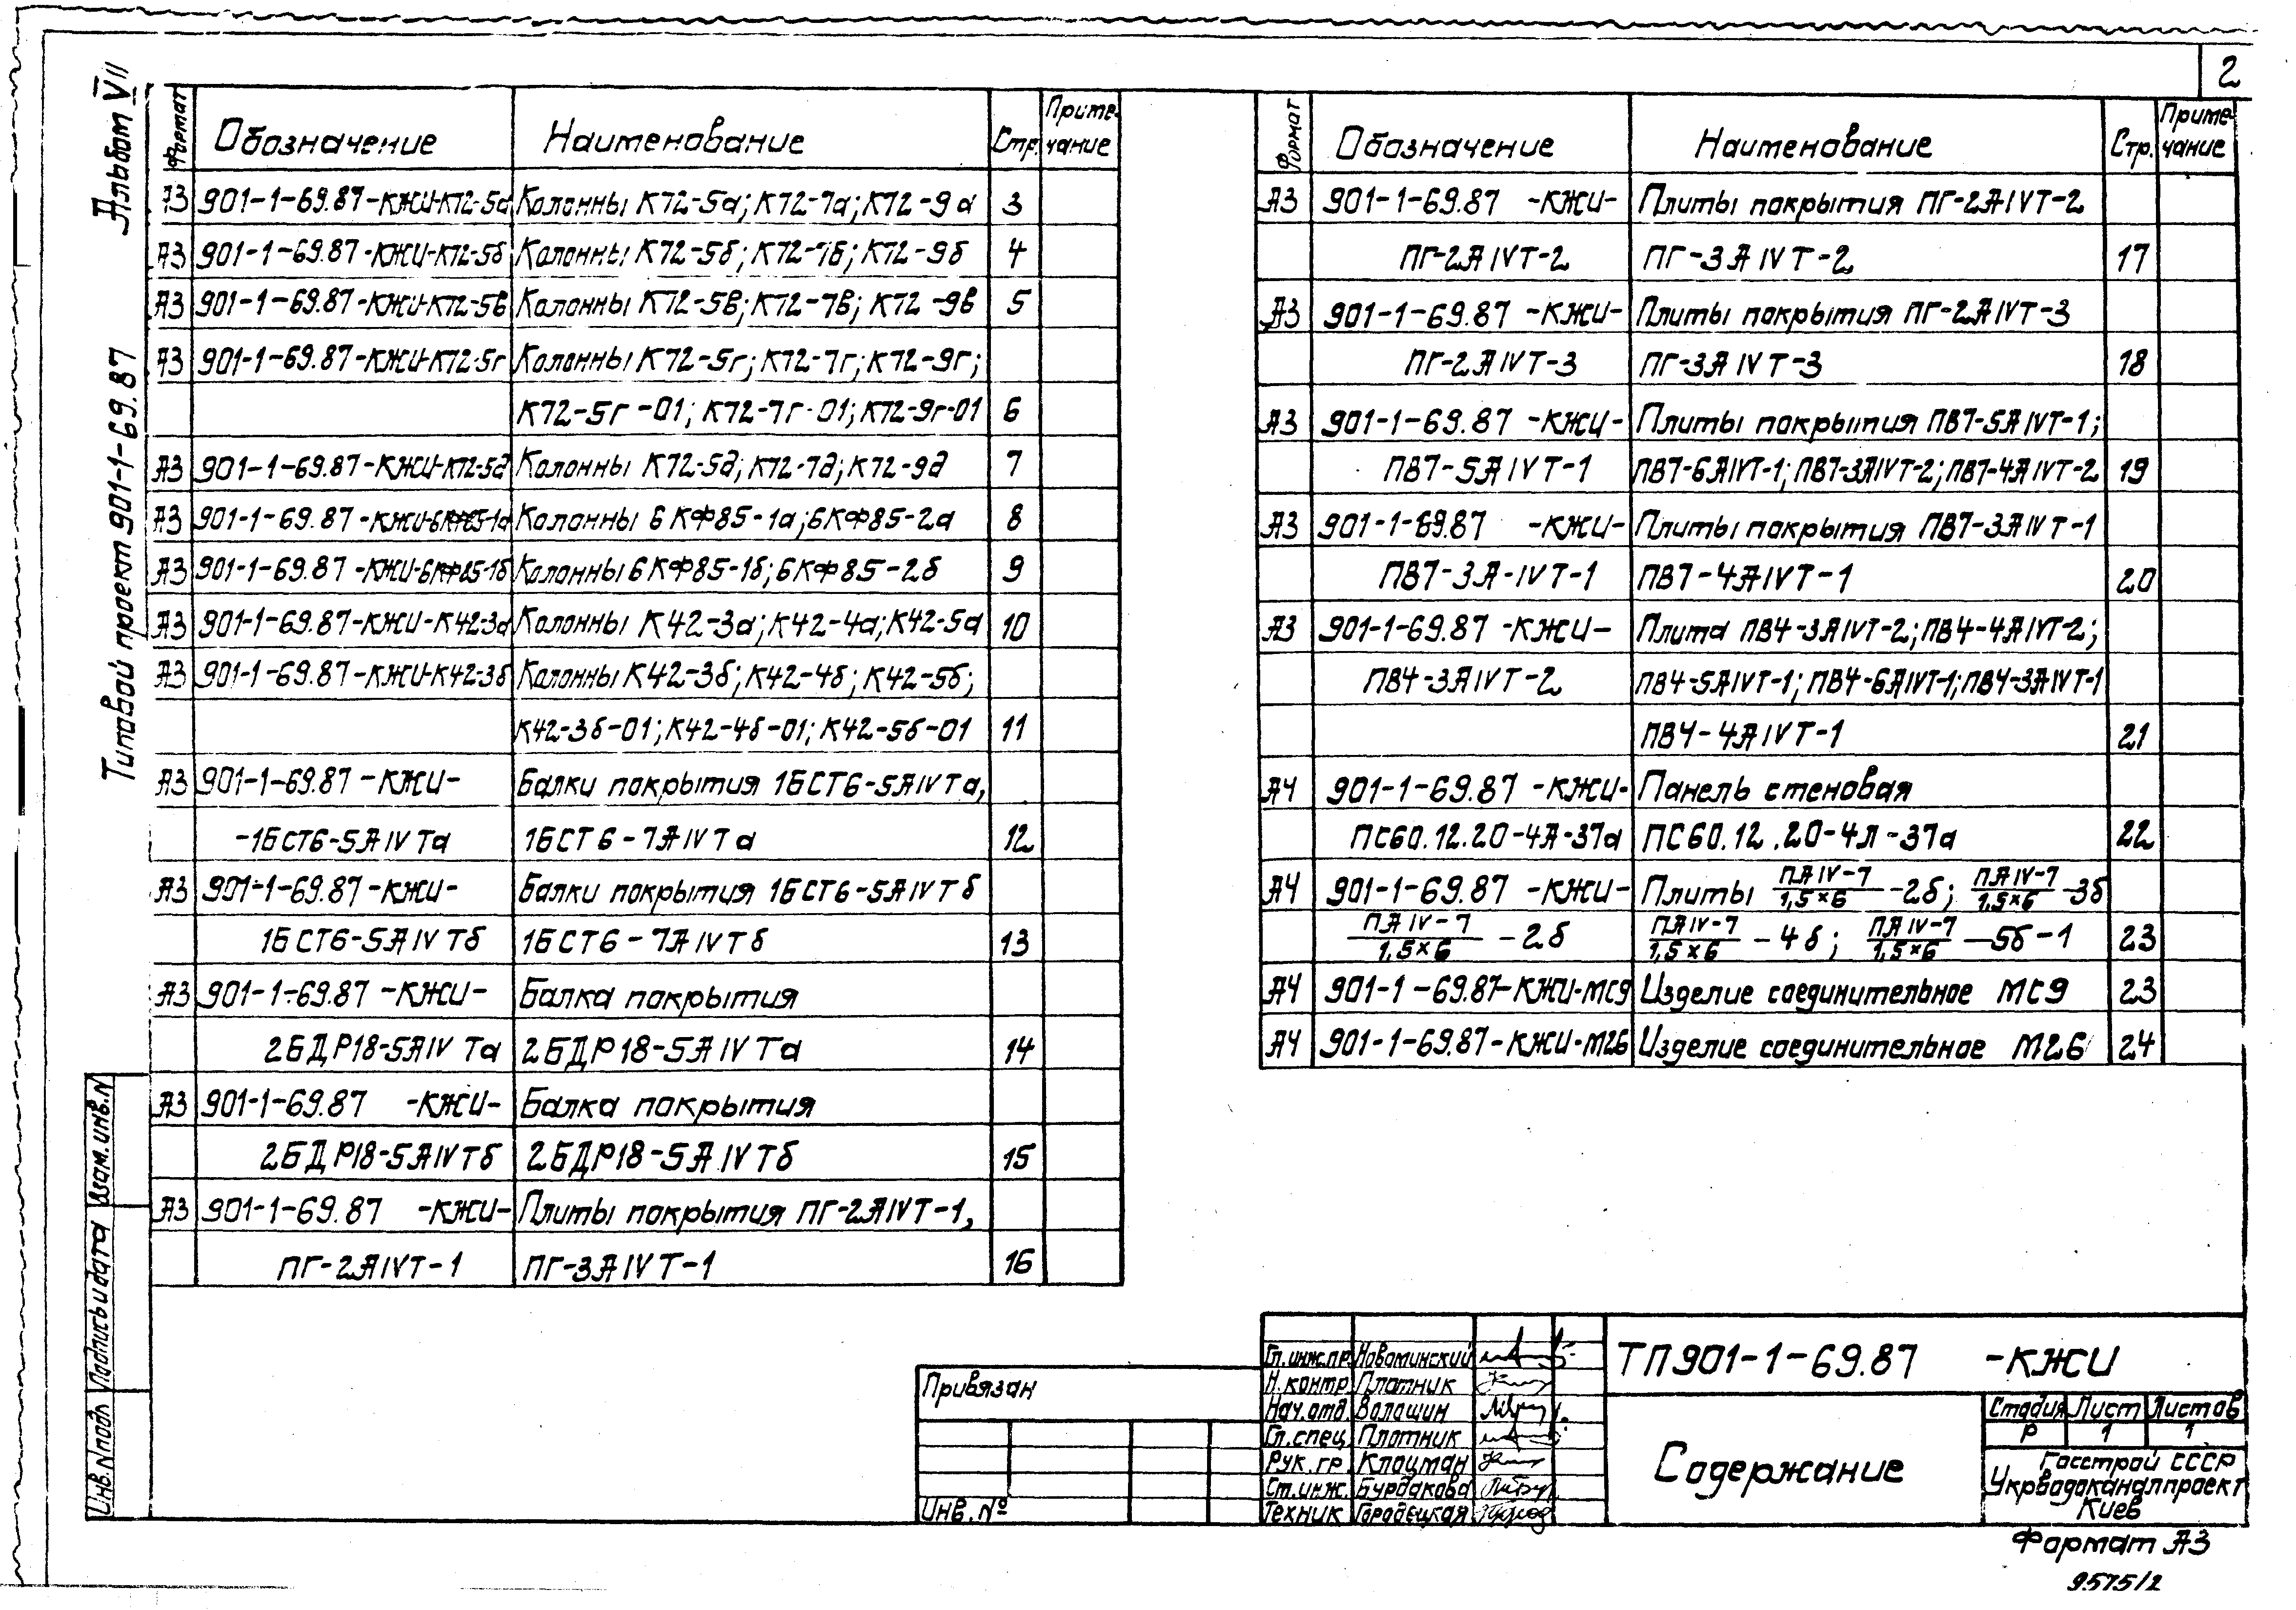 2
Альбом VII
Типовой проект 901-1-69.87
Формат Обозначение Наименование Стр. Примечание
А3 901-1-69.87-КЖИ-К72-5а Колонны К72-5а; К72-7а; К72-9а 3
А3 901-1-69.87-КЖИ-К72-5б Колонны К72-5б; К72-7б; К72-9б 4
А3 901-1-69.87-КЖИ-К72-5в Колонны К72-5в; К72-7в; К72-9в 5
А3 901-1-69.87-КЖИ-К72-5г Колонны К72-5г; К72-7г; К72-9г;
К72-5г-01; К72-7г-01; К72-9г-01 6
А3 901-1-69.87-КЖИ-К72-5д Колонны К72-5д; К72-7д; К72-9д 7
А3 901-1-69.87-КЖИ-6КФ85-1а Колонны 6КФ85-1а; 6КФ85-2а 8
А3 901-1-69.87-КЖИ-6КФ85-1б Колонны 6КФ85-1б; 6КФ85-2б 9
А3 901-1-69.87-КЖИ-К42-3а Колонны К42-3а; К42-4а; К42-5а 10
А3 901-1-69.87-КЖИ-К42-3б Колонны К42-3б; К42-4б; К42-5б;
К42-3б-01; К42-4б-01; К42-5б-01 11
А3 901-1-69.87-КЖИ- Балки покрытия 1БСТ6-5АIVТа,
-1БСТ6-5АIVТа 1БСТ6-7АIVТа 12
А3 901-1-69.87-КЖИ- Балки покрытия 1БСТ6-5АIVТб
1БСТ6-5АIVТб 1БСТ6-7АIVТб 13
А3 901-1-69.87-КЖИ- Балка покрытия
2БДР18-5АIVТа 2БДР18-5АIVТа 14
А3 901-1-69.87 -КЖИ- Балка покрытия
2БДР18-5АIVТб 2БДР18-5АIVТб 15
А3 901-1-69.87 -КЖИ- Плиты покрытия ПГ-2АIVТ-1,
ПГ-2АIVТ-1 ПГ-3АIVТ-1 16
Формат Обозначение Наименование Стр. Примечание
А3 901-1-69.87 -КЖИ- Плиты покрытия ПГ-2АIVТ-2
ПГ-2АIVТ-2 ПГ-3АIVТ-2 17
А3 901-1-69.87 -КЖИ- Плиты покрытия ПГ-2АIVТ-3
ПГ-2АIVТ-3 ПГ-3АIVТ-3 18
А3 901-1-69.87 -КЖИ- Плиты покрытия ПВ7-5АIVТ-1;
ПВ7-5АIVТ-1 ПВ7-6АIVТ-1; ПВ7-3АIVТ-2; ПВ7-4АIVТ-2 19
А3 901-1-69.87 -КЖИ- Плиты покрытия ПВ7-3АIVТ-1
ПВ7-3А-IVТ-1 ПВ7-4АIVТ-1 20
А3 901-1-69.87 -КЖИ- Плита ПВ4-3АIVТ-2; ПВ4-4АIVТ-2;
ПВ4-3АIVТ-2 ПВ4-5АIVТ-1; ПВ4-6АIVТ-1; ПВ4-3АIVТ-1
ПВ4-4АIVТ-1 21
А4 901-1-69.87 -КЖИ- Панель стеновая
ПС60.12.20-4Л-37а ПС60.12.20-4Л-37а 22
А4 901-1-69.87 -КЖИ- Плиты ПАIV-7/1,5×6 -2б; ПАIV-7/1,5×6 -3б
ПАIV-7/1,5×6 -2б ПАIV-7/1,5×6 -4б; ПАIV-7/1,5×6 -5б-1 23
А4 901-1-69.87-КЖИ-МС9 Изделие соединительное МС9 23
А4 901-1-69.87-КЖИ-М26 Изделие соединительное М26 24
Взам.инв.N
Подпись и дата
Инв.N подл
Привязан
Инв.№
Гл.инж.пр. Новоминский
Н.контр. Плотник
Нач.отд. Волошин
Гл.спец. Плотник
Рук.гр. Клоцман
Ст.инж. Бурдакова
Техник Городецкая
ТП901-1-69.87 -КЖИ
Содержание
Стадия Лист Листов
Р 1 1
Госстрой СССР
Укрводоканалпроект
Киев
Формат А3
9575/2